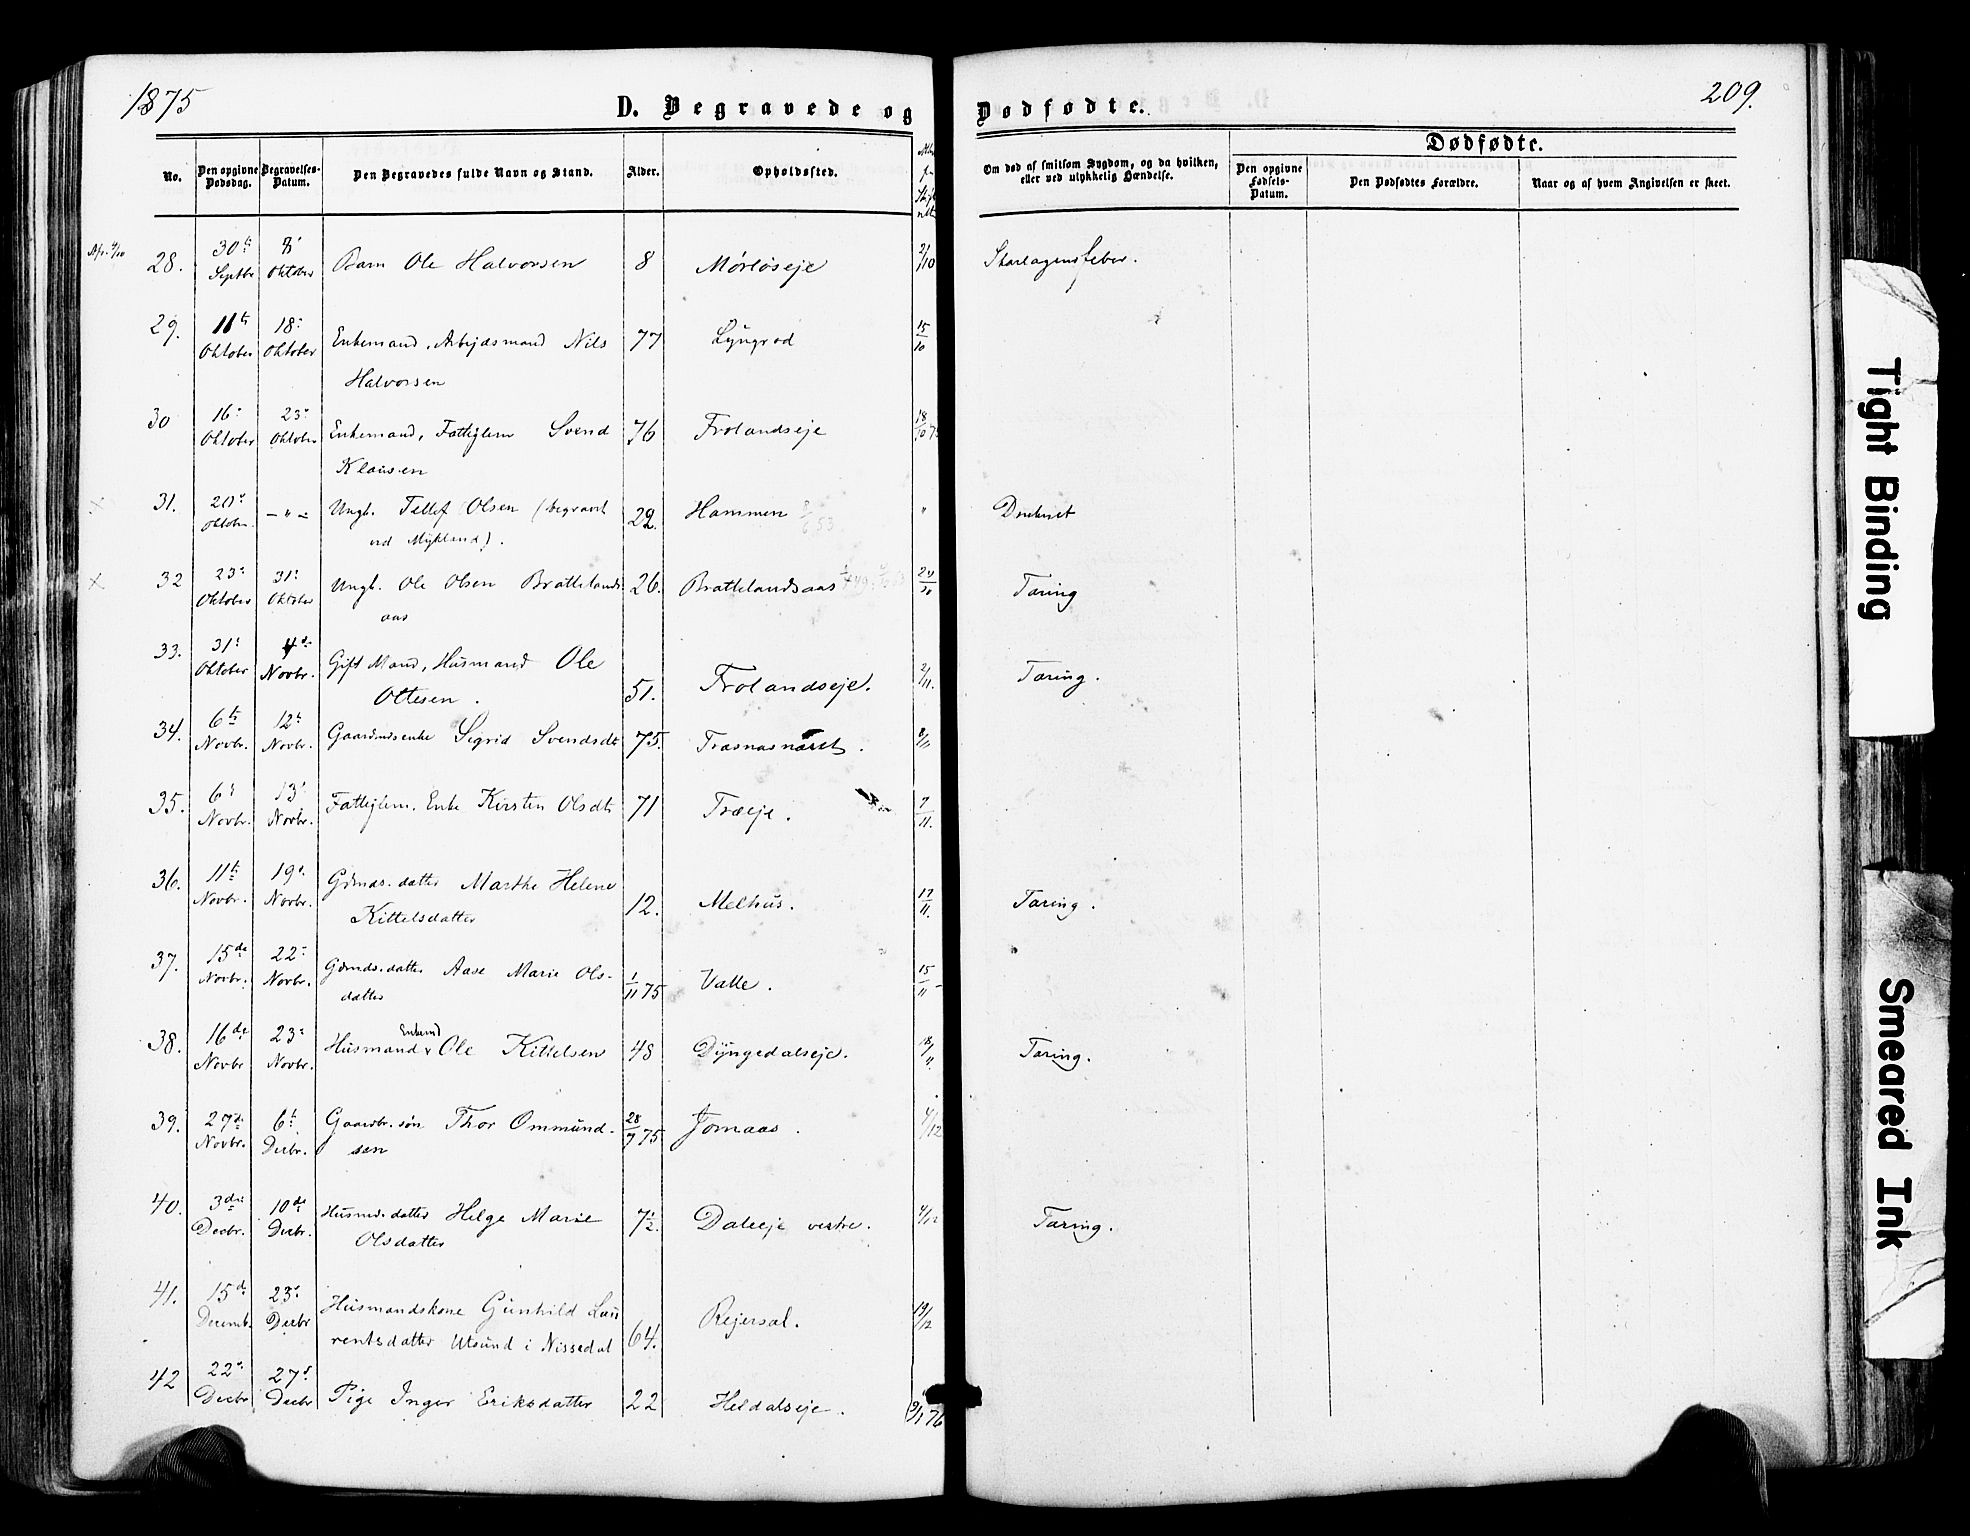 1875
D. Begravede og Dødfødte.
209.
No.
Den opgivne Dødsdag.
Begravelses-Datum.
Den Begravedes fulde Navn og Stand.
Alder.
Opholdssted.
Om død af smitsom Sygdom, og da hvilken,
eller ved ulykkelig Hændelse.
Dødfødte.
Den opgivne Fødsels-Datum.
Den Dødfødtes Forældre.
Naar og af hvem Angivelsen er skeet.
28. 30te Septbr 8' Oktober Barn Ole Halvorsen 8 2/10 Skarlagensfeber.
29. 11te Oktober 18' Oktober Enkemand, Arbejdsmand Nils 77 Lyngrod 15/10
Halvorsen
30 16' Oktober 23' Oktober Enkemand, Fattiglem Svend 76 Frolandseje 18/10 75
Klausen
31. 20' Oktobr. - " - Ungk. Tellef Olsen (begravet 22. Hammen " Druknet
ved Mykland).
32 23' Oktober 31' Oktober Ungk. Ole Olsen Brattelands- 26. Brattelandsaas Tæring
aas
33. 31' Oktober 4de Novbr. Gift Mand, Husmand Ole 51. Frolandseje. 2/11. Tæring.
Ottesen.
34. 6te Novbr. 12' Novbr. Gaardmdsenke Sigrid Svendsdt 75. 8/11
35. 6' Novbr. 13' Novbr. Fattiglem. Enke Kirsten Olsdt 71 Træeje. 7/11.
36. 11te Novbr. 19' Novbr. Gdmds. datter Marthe Helene 12. Melhus. 17/11. Tæring.
Kittelsdatter
37. 15de Novbr. 22' Novbr. Gdmds. datter Aase Marie Ols- 1/11 75 Valle. 15/11
datter
Enkemd
38. 16de Novbr 23' Novbr. Husmand Ole Kittelsen 48 Dyngedalseje. 18/11 Tæring.
39. 27de Novbr. 6te Decbr. Gaardbr. søn Thor Ommund- 28/7 75 Jomaas. 4/12
sen
40. 3die Decbr. 10de Decbr. Husmds. datter Helge Marie 7 1/2. Daleeje vestre. 4/12 Tæring.
Olsdatter
41. 15de Decemb. 23' Decbr Husmandskone Gunhild Lau 64. Rejersøl. 19/12
rentsdatter Utsund i Nissedal
42 22' Decbr 27' Decbr Pige Inger Eriksdatter 22 Heldalseje. 9/1 76
Tight Binding
Smeared Ink